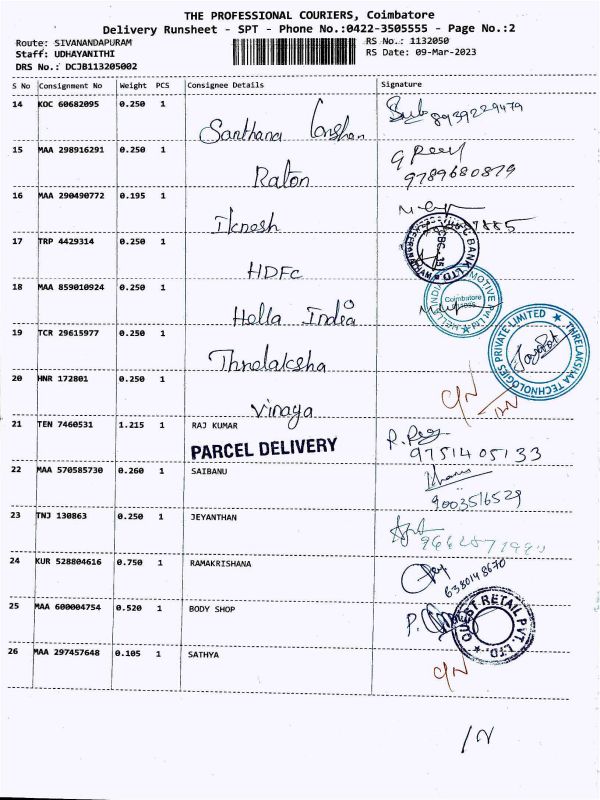 THE PROFESSIONAL COURIERS, Coimbatore
Delivery Runsheet - SPT - Phone No.:0422-3505555 - Page No.:2
Route: SIVANANDAPURAM RS No.: 1132050
Staff: UDHAYANITHI RS Date: 09-Mar-2023
DRS No.: DCJB113205002
S No Consignment No Weight PCS Consignee Details Signature
14 KOC 60682095 0.250 1 Santhana
8939229479
15 MAA 298916291 0.250 1 Raton
9789680879
16 MAA 290490772 0.195 1
17 TRP 4429314 0.250 1 HDFC
BANK LTD
18 MAA 859010924 0.250 1 Hella India
Coimbatore
19 TCR 29615977 0.250 1 Threlaksha
THRELAKSHAA TECHNOLOGIES PRIVATE LIMITED
20 HNR 172801 0.250 1 Vinaya
C/N
21 TEN 7460531 1.215 1 RAJ KUMAR
PARCEL DELIVERY
9751405133
22 MAA 570585730 0.260 1 SAIBANU
9003516529
23 TNJ 130863 0.250 1 JEYANTHAN
24 KUR 528804616 0.750 1 RAMAKRISHANA
6380148670
25 MAA 600004754 0.520 1 BODY SHOP
QUEST RETAIL PVT. LTD.
26 MAA 297457648 0.105 1 SATHYA
C/N